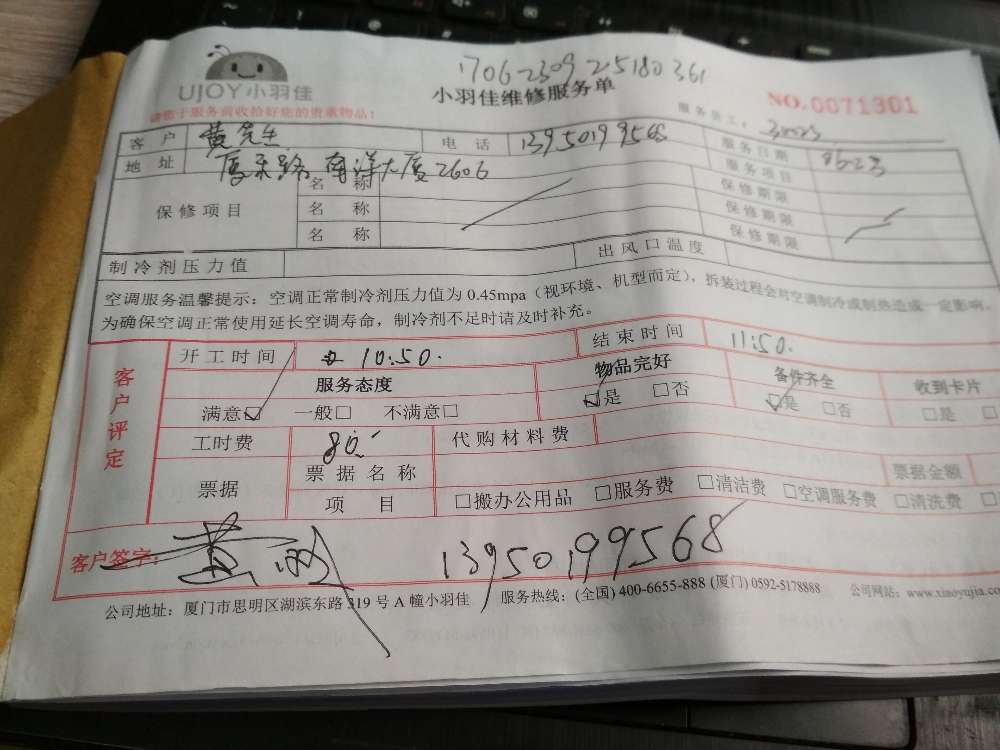 1706230925180361
UJOY小羽佳
小羽佳维修服务单
NO.0071301
请您于服务前收拾好您的贵重物品!
服务员工:
客户 黄先生 电话 13950199568 服务日期 0623
地址 厦禾路 南洋大厦2606 服务项目
保修项目 名称 保修期限
名称 保修期限
名称 保修期限
制冷剂压力值 出风口温度
空调服务温馨提示:空调正常制冷剂压力值为0.45mpa(视环境、机型而定),拆装过程会对空调制冷或制热造成一定影响。
为确保空调正常使用延长空调寿命,制冷剂不足时请及时补充。
客户评定
开工时间 10:50. 结束时间 11:50.
服务态度 物品完好 备件齐全 收到卡片
满意☑ 一般□ 不满意□ ☑是 □否 ☑是 □否 □是 □
工时费 80 代购材料费
票据 票据名称 票据金额
项目 □搬办公用品 □服务费 □清洁费 □空调服务费 □清洗费 □
客户签字: 13950199568
公司地址:厦门市思明区湖滨东路319号A幢小羽佳 服务热线:(全国)400-6655-888 (厦门) 0592-5178888 公司网站:www.xiaoyujia.com